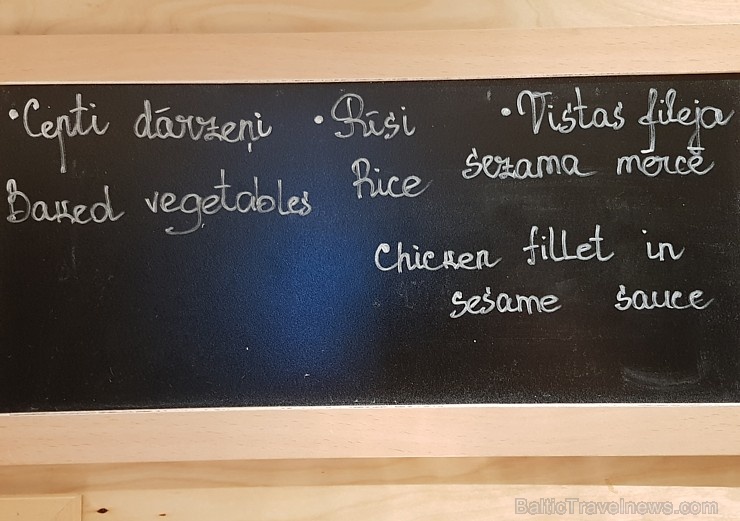 •Cepti dārzeņi
Baked vegetables
•Rīsi
Rice
•Vistas fileja
sezama mērcē
Chicken fillet in
sesame sauce
BalticTravelnews.com